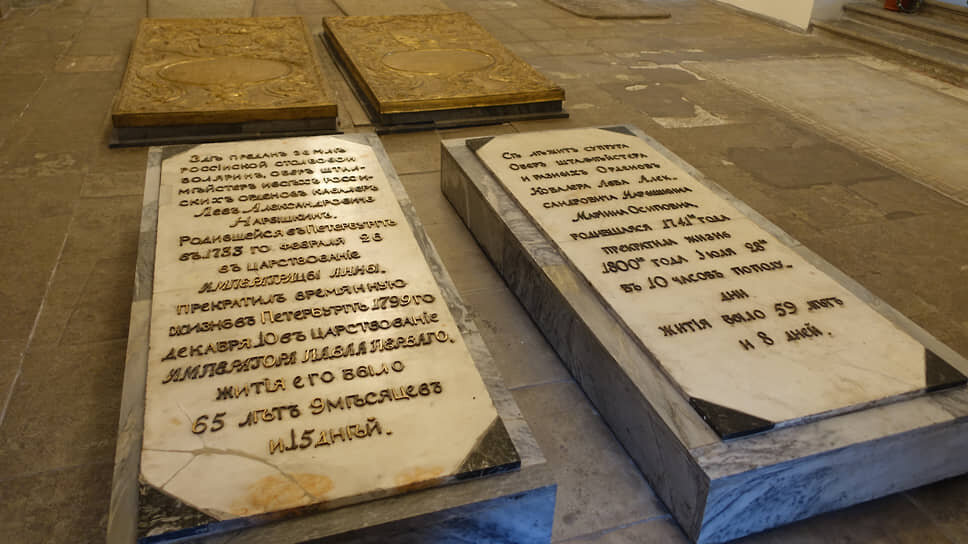 Здѣ преданъ землѣ
россійской столбовои
бояринъ, оберъ штал-
мѣйстеръ ивсѣхъ росси-
скихъ орденовъ кавалеръ
Левъ Александровичъ
Нарышкинъ.
Родившейся въ Петербургѣ
въ 1733 го февраля 26
въ царствованіе
императрицы Анны.
Прекратилъ времянную
жизнь въ Петербургѣ 1799 го
декабря 10 въ царствованіе
императора Павла перваго.
житія его было
65 лѣтъ 9 мѣсяцевъ
и 15 дней.
Сѣ лѣжитъ супруга
Оберъ шталмѣйстера
и разныхъ Орденовъ
Ковалера Лѣва Алек-
сандровича Нарышкина
Марина Осиповна,
родившаяся 1741го года
прекратила жизнь
1800го года Июля 28го
въ 10 часовъ пополу-
дни
житія было 59 лѣтъ
и 8 дней.